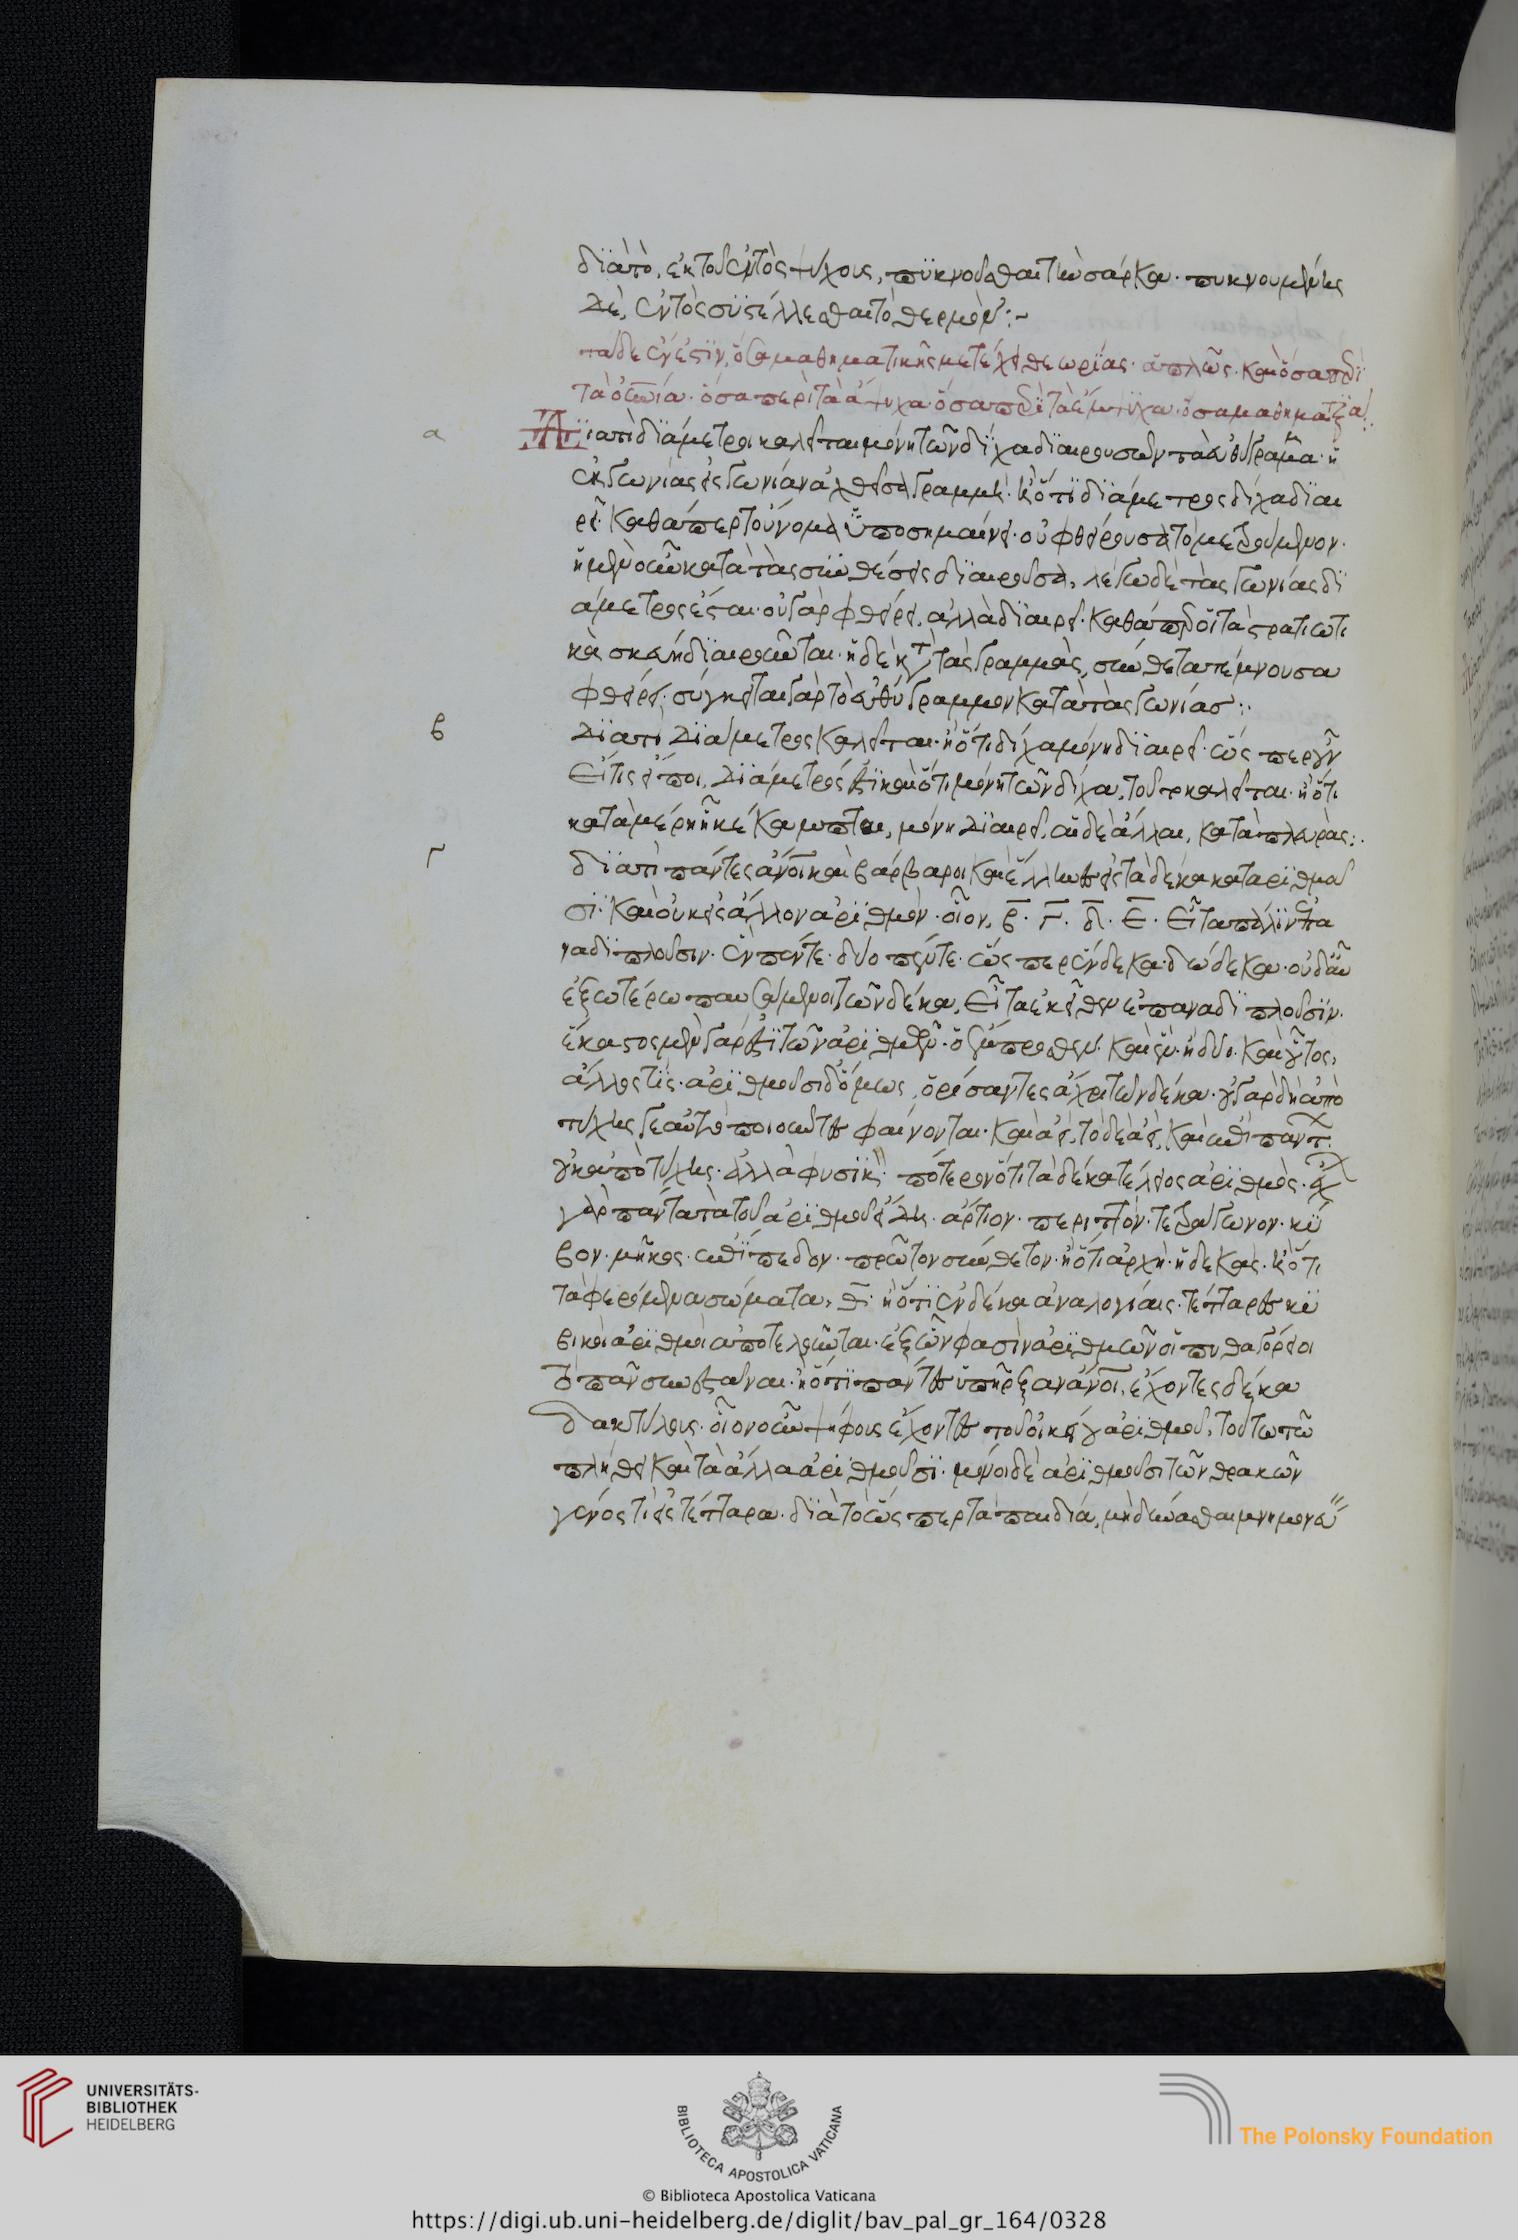 διαπὸ, ἐκ τοῦ ἐντὸς ψύχους, πυκνοῦσθαι τὴν σάρκα. πυκνουμένης
δὲ, ἐντὸς συστέλλεσθαι τὸ θερμόν:~
τάδε ἔνεστιν, ὅσα μαθηματικῆς μετέχει θεωρίας. ἁπλῶς. καὶ ὅσα περὶ
τὰ οὐράνια. ὅσα περὶ τὰ ἄψυχα. ὅσα περὶ τὰ ἔμψυχα. ὅσα μαθηματικά:.
α Διατὶ διάμετροι καλεῖται μόνη τῶν δίχα διαιρουσῶν τὰ εὐθύγραμμα. ἡ
ἐκ γωνίας εἰς γωνίαν ἀχθεῖσα γραμμή. ἢ ὅτι διάμετρος δίχα διαι
ρεῖ. καθάπερ τοὔνομα ὑποσημαίνει. οὐ φθείρουσα τὸ μετρούμενον.
ἡ μὲν οὖν κατὰ τὰς συνθέσεις διαιροῦσα, λέγω δὲ τὰς γωνίας δι
άμετρος ἔσται. οὐ γὰρ φθείρει, ἀλλὰ διαιρεῖ. καθάπερ οἱ τὰ στρατιωτι
κὰ σκεύη διαιροῦνται. ἡ δὲ κατὰ τὰς γραμμὰς, σύνθετα τέμνουσα
φθείρει. σύγκειται γὰρ τὸ εὐθύγραμμον κατὰ τὰς γωνίας:.
β Διατὶ διάμετρος καλεῖται. ἢ ὅτι δίχα μόνη διαιρεῖ. ὥς περ οὖν
εἴ τις εἴποι, διάμετρός ἐστι καὶ ὅτι μόνη τῶν δίχα, τοῦτο καλεῖται. ἢ ὅτι
κατὰ μέρη ᾗ κέκαμπται, μόνη διαιρεῖ, αἱ δὲ ἄλλαι, κατὰ πλευράς:.
γ διατὶ πάντες ἄνοι καὶ βάρβαροι καὶ ἕλληνες εἰς τὰ δέκα καταριθμοῦ
σι. καὶ οὐκ εἰς ἄλλον ἀριθμὸν. οἷον, β. γ. δ. ε. εἶτα πάλιν ἐπα
ναδιπλοῦσιν. ἓν πέντε. δύο πέντε. ὥς περ ἕνδεκα. δώδεκα. οὐδ' αὖ
ἐξωτέρω παυσάμενοι τῶν δέκα, εἶτα ἐκεῖθεν ἐπαναδιπλοῦσιν.
ἕκαστος μὲν γάρ ἐστι τῶν ἀριθμῶν. ὁ ἔμπροσθεν. καὶ ἓν. ἢ δύο. καὶ οὗτος,
ἄλλος τίς. ἀριθμοῦσι δ' ὅμως, ὁρίσαντες ἄχρι τῶν δέκα. οὐ γὰρ δὴ ἀπὸ
τύχης γε αὐτὸ ποιοῦντες φαίνονται. καὶ ἀεί, τὸ δὲ ἀεί, καὶ ἐπὶ πάντ
οὐκ ἀπὸ τύχης. ἀλλὰ φυσικὸν. πότερον ὅτι τὰ δέκα τέλειος ἀριθμός. ἔχ
γὰρ πάντα τὰ τοῦ ἀριθμοῦ εἴδη. ἄρτιον. περιττόν. τετράγωνον. κύ
βον. μῆκος. ἐπίπεδον. πρῶτον σύνθετον. ἢ ὅτι ἀρχὴ. ἡ δεκάς. ἢ ὅτι
τὰ φερόμενα σώματα, θ. ἢ ὅτι ἐν δέκα ἀναλογίαις. τέτταρες κυ
βικοὶ ἀριθμοὶ ἀποτελοῦνται. ἐξ ὧν φασὶν ἀριθμῶν οἱ πυθαγόρειοι
τὸ πᾶν συνεστάναι. ἢ ὅτι πάντες ὑπῆρξαν ἄνοι, ἔχοντες δέκα
δακτύλους. οἷον οὖν ψήφους ἔχοντες τοῦ οἰκείου ἀριθμοῦ, τούτω τῶ
πλήθει καὶ τὰ ἄλλα ἀριθμοῦσι. μόνοι δὲ ἀριθμοῦσι τῶν θρακῶν
γένός τι εἰς τέτταρα. διὰ τὸ ὥς περ τὰ παιδία, μὴ δύνασθαι μνημονεύ
UNIVERSITÄTS-
BIBLIOTHEK
HEIDELBERG
BIBLIOTECA APOSTOLICA VATICANA
The Polonsky Foundation
© Biblioteca Apostolica Vaticana
https://digi.ub.uni-heidelberg.de/diglit/bav_pal_gr_164/0328